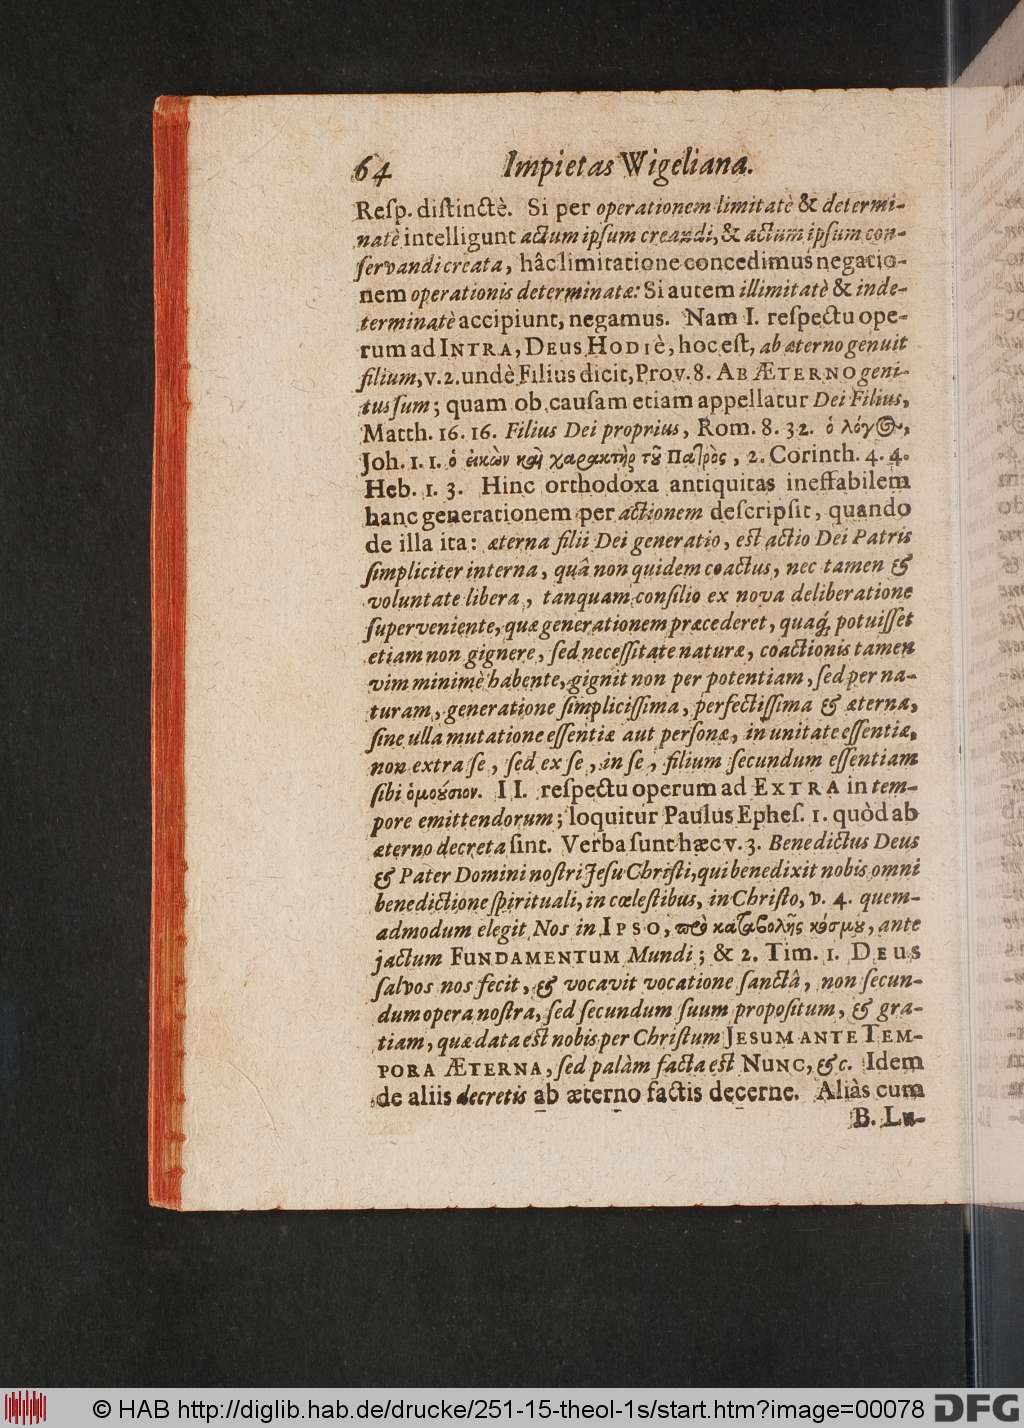 64 Impietas Wigeliana.
Reſp. diſtinctè. Si per operationem limitatè & determi-
natè intelligunt actum ipſum creandi, & actum ipſum con-
ſervandi creata, hâc limitatione concedimus negatio-
nem operationis determinatæ: Si autem illimitatè & inde-
terminatè accipiunt, negamus. Nam I. reſpectu ope-
rum ad INTRA, DEUS HODIè, hoc eſt, ab æterno genuit
filium, v. 2. undè Filius dicit, Prov. 8. AB ÆTERNO geni-
tus ſum; quam ob cauſam etiam appellatur Dei Filius,
Matth. 16. 16. Filius Dei proprius, Rom. 8. 32. ὁ λόγος,
Joh. 1. 1. ὁ ἐικὼν καὶ χαρακτὴρ τȣ͂ Πατρὸς, 2. Corinth. 4. 4.
Heb. 1. 3. Hinc orthodoxa antiquitas ineffabilem
hanc generationem per actionem deſcripſit, quando
de illa ita: æterna filii Dei generatio, eſt actio Dei Patris
ſimpliciter interna, quâ non quidem coactus, nec tamen &
voluntate libera, tanquam conſilio ex nova deliberatione
ſuperveniente, quæ generationem præcederet, quaq́; potuiſſet
etiam non gignere, ſed neceſſitate naturæ, coactionis tamen
vim minimè habente, gignit non per potentiam, ſed per na-
turam, generatione ſimpliciſſima, perfectiſſima & æterna,
ſine ulla mutatione eſſentiæ aut perſonæ, in unitate eſſentiæ,
non extra ſe, ſed ex ſe, in ſe, filium ſecundum eſſentiam
ſibi ὁμούσιον. II. reſpectu operum ad EXTRA in tem-
pore emittendorum; loquitur Paulus Epheſ. 1. quòd ab
æterno decreta ſint. Verba ſunt hæc v. 3. Benedictus Deus
& Pater Domini noſtri Jeſu Chriſti, qui benedixit nobis omni
benedictione ſpirituali, in cœleſtibus, in Chriſto, v. 4. quem-
admodum elegit Nos in IPSO, πρὸ καταβολῆς κόσμȣ, ante
jactum FUNDAMENTUM Mundi; & 2. Tim. 1. DEUS
ſalvos nos fecit, & vocavit vocatione ſanctâ, non ſecun-
dum opera noſtra, ſed ſecundum ſuum propoſitum, & gra-
tiam, quæ data eſt nobis per Chriſtum JESUM ANTE TEM-
PORA ÆTERNA, ſed palàm facta eſt NUNC, &c. Idem
de aliis decretis ab æterno factis decerne. Aliàs cum
B. Lu-
© HAB http://diglib.hab.de/drucke/251-15-theol-1s/start.htm?image=00078
DFG